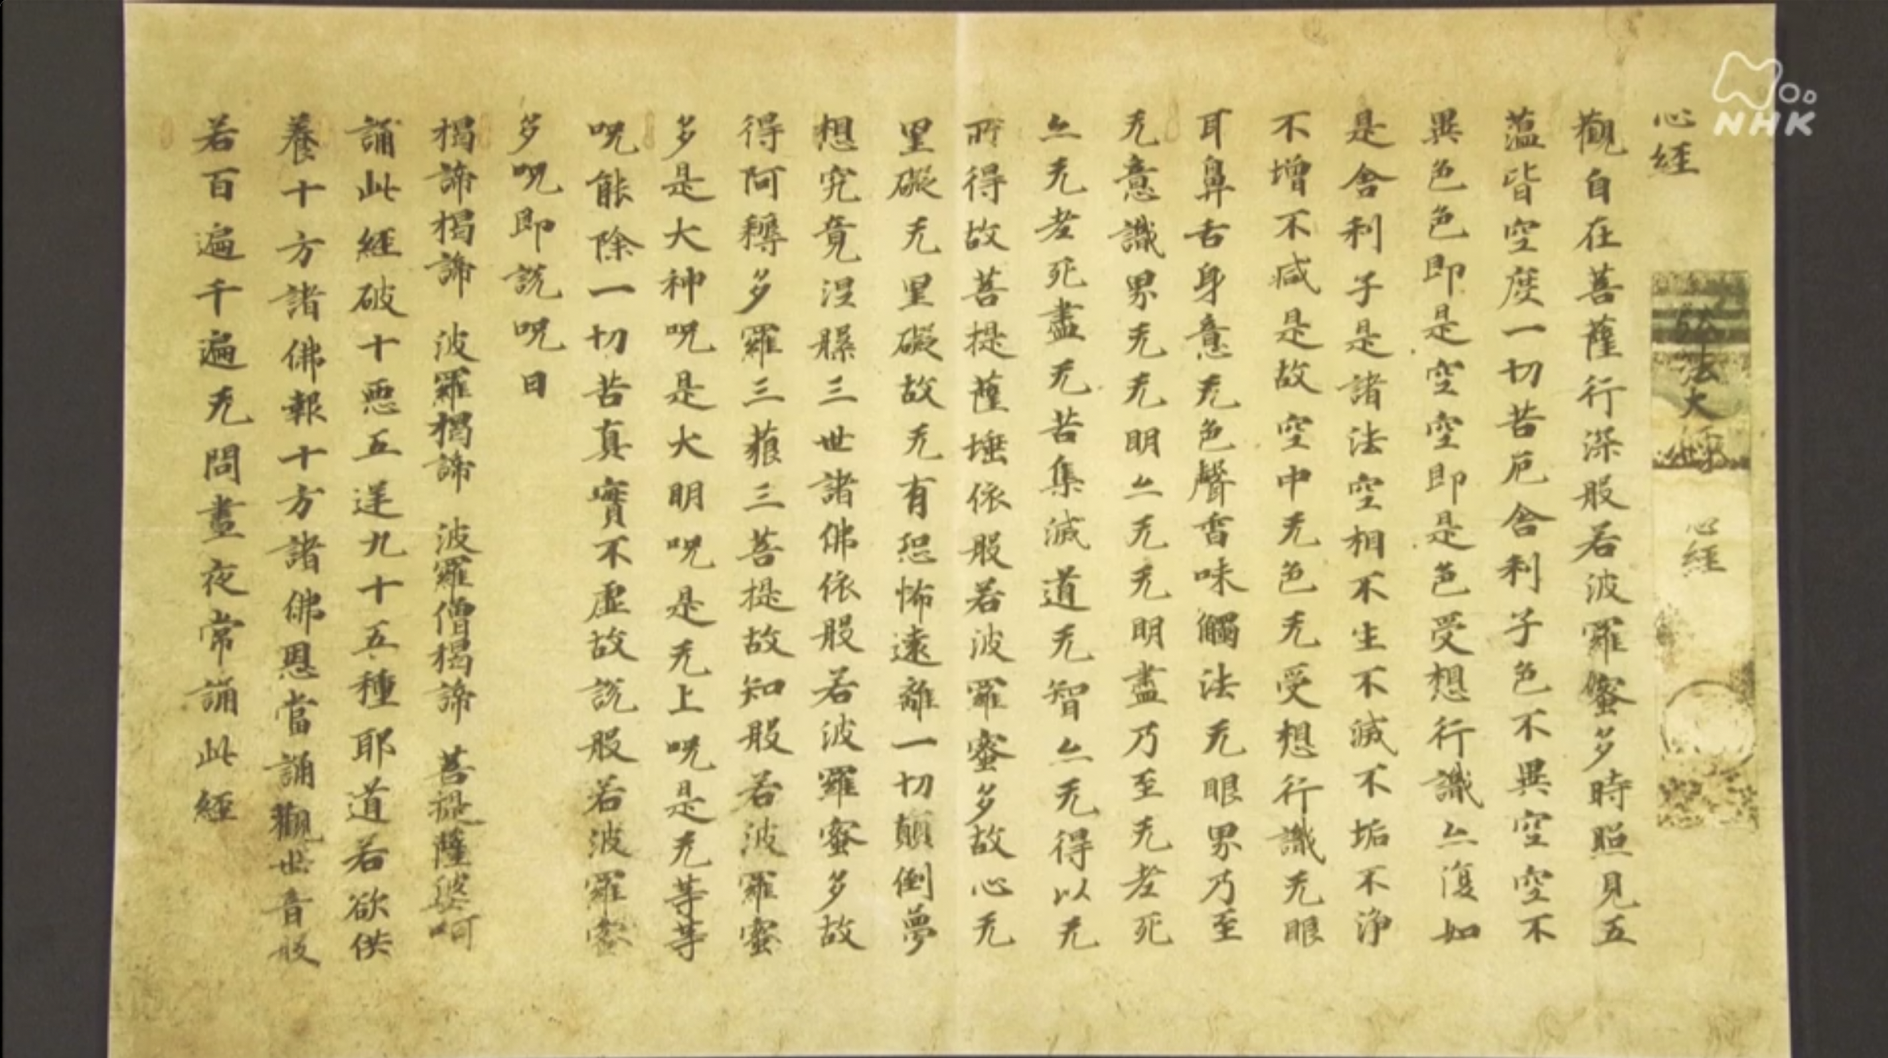 NHK
心經
法大師 心經
觀自在菩薩行深般若波羅蜜多時照見五
蘊皆空度一切苦厄舎利子色不異空空不
異色色即是空空即是色受想行識亦復如
是舎利子是諸法空相不生不滅不垢不浄
不增不减是故空中无色无受想行識无眼
耳鼻舌身意无色聲香味觸法无眼界乃至
无意識界无无明亦无无明盡乃至无老死
亦无老死盡无苦集滅道无智亦无得以无
所得故菩提薩埵依般若波羅蜜多故心无
罣礙无罣礙故无有恐怖遠離一切顛倒夢
想究竟涅槃三世諸佛依般若波羅蜜多故
得阿耨多羅三藐三菩提故知般若波羅蜜
多是大神呪是大明呪是无上呪是无等等
呪能除一切苦真實不虚故説般若波羅蜜
多呪即説呪曰
揭諦揭諦 波羅揭諦 波羅僧揭諦 菩提薩婆呵
誦此經破十悪五逆九十五種耶道若欲供
養十方諸佛報十方諸佛恩當誦觀世音般
若百遍千遍无問晝夜常誦此經